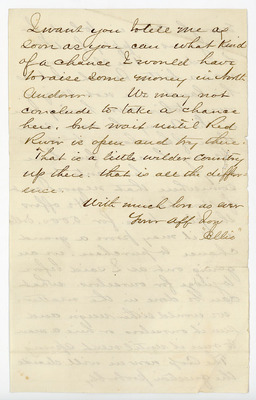 I want you to tell me as
soon as you can what kind
of a chance I would have
to raise some money in North
Andover. We may not
conclude to take a chance
here, but wait until Red
River is open and try there.
That is a little wilder country
up there: that is all the differ-
ence.
With much love as ever
Your Aff. Son
Ellis